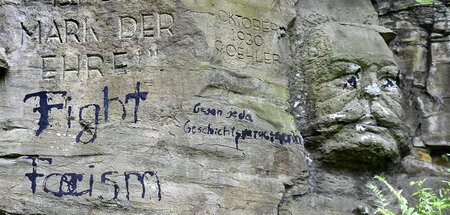 MARK DER
EHRE
OKTOBER
1930
GOEHLER
Fight
Facism
Gegen jede